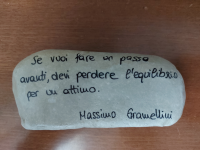 Se vuoi fare un passo
avanti, devi perdere l'equilibrio
per un attimo.
Massimo Gramellini